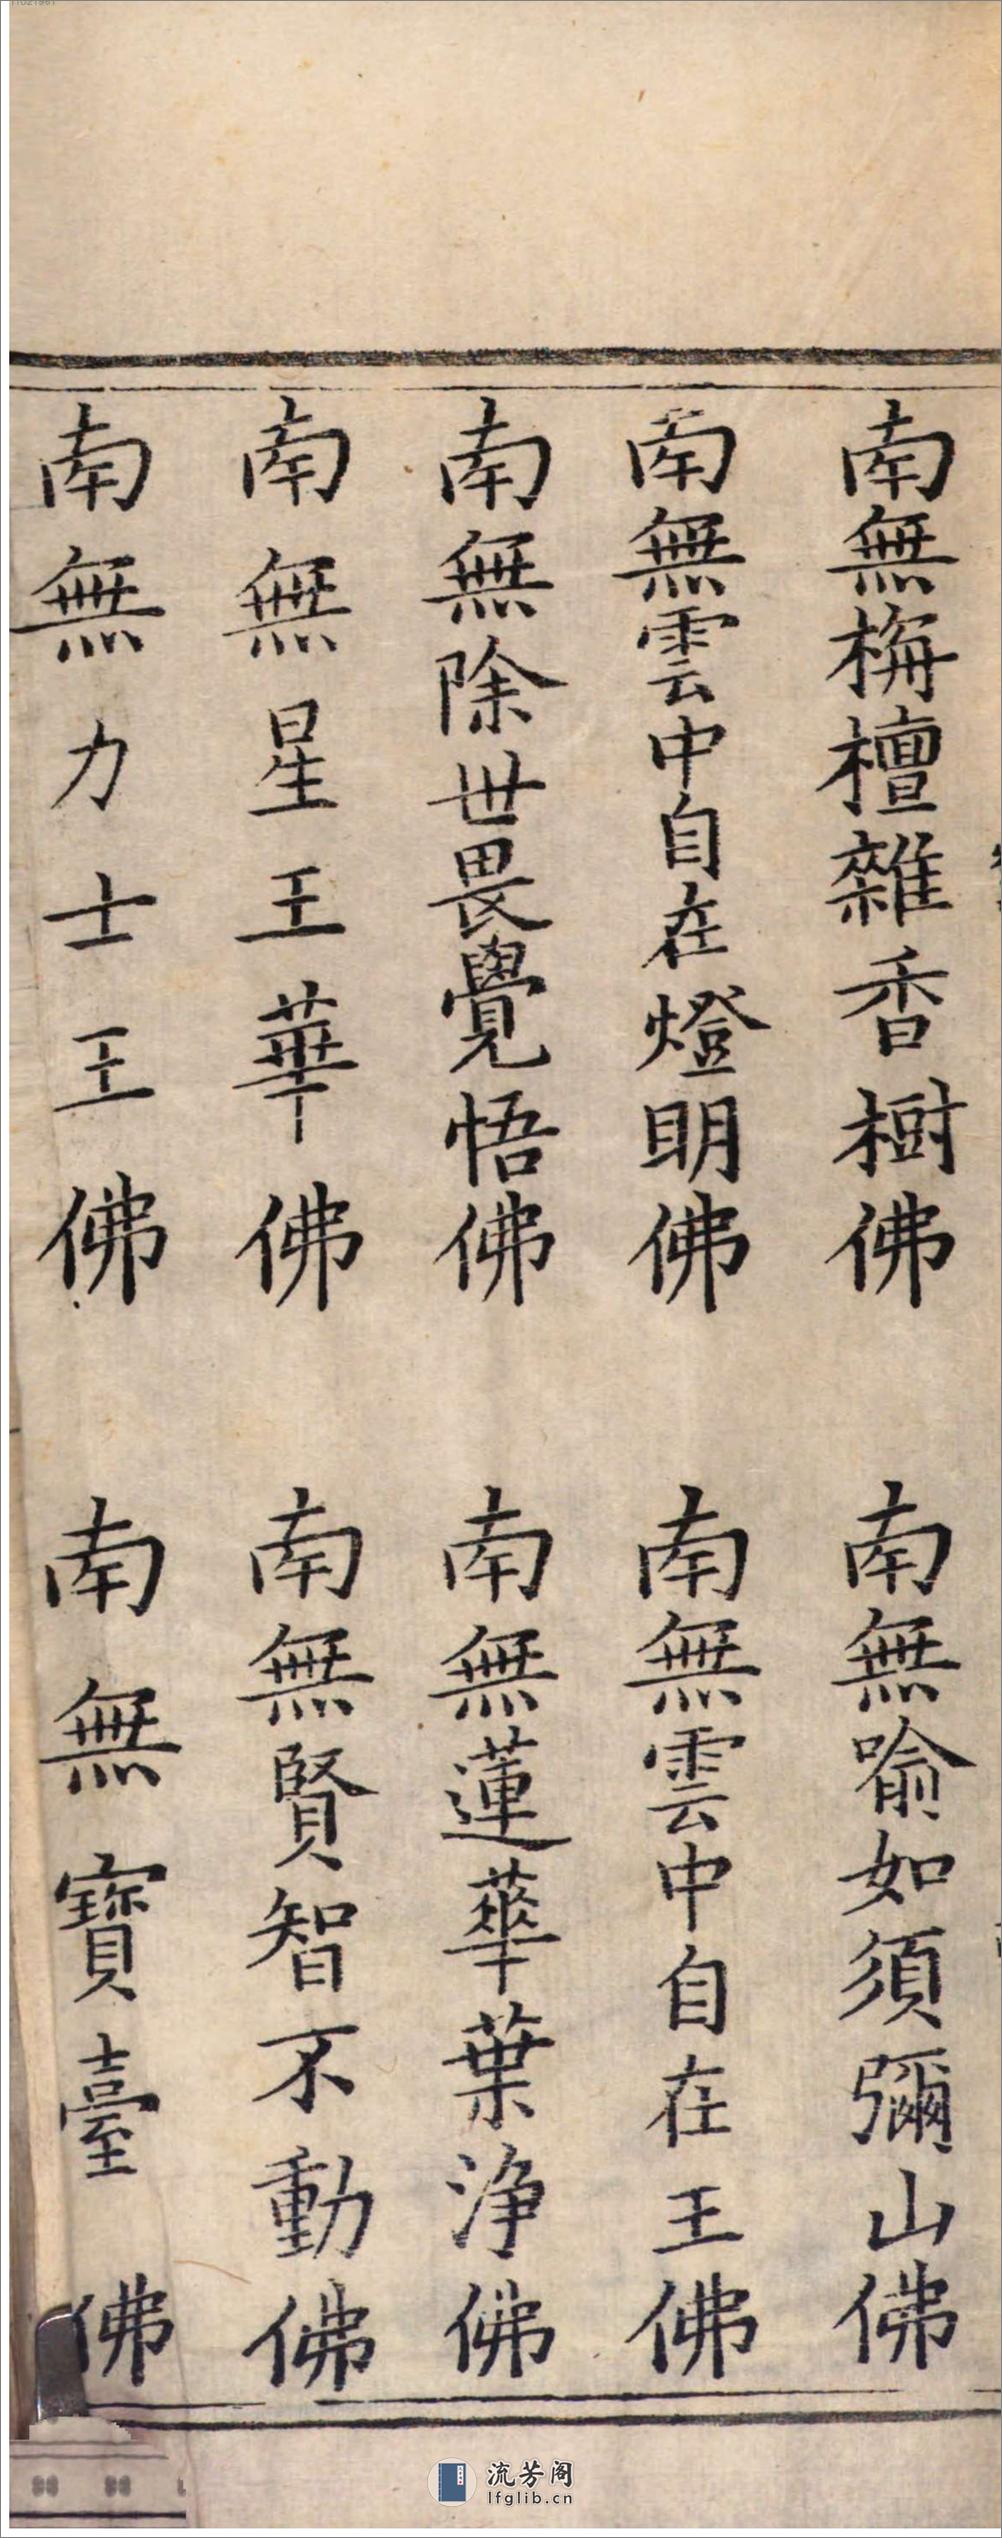 南無栴檀雜香樹佛
南無喻如須彌山佛
南無雲中自在燈明佛
南無雲中自在王佛
南無除世畏覺悟佛
南無蓮華葉淨佛
南無星王華佛
南無賢智不動佛
南無力士王佛
南無寶臺佛
流芳阁
lfglib.cn